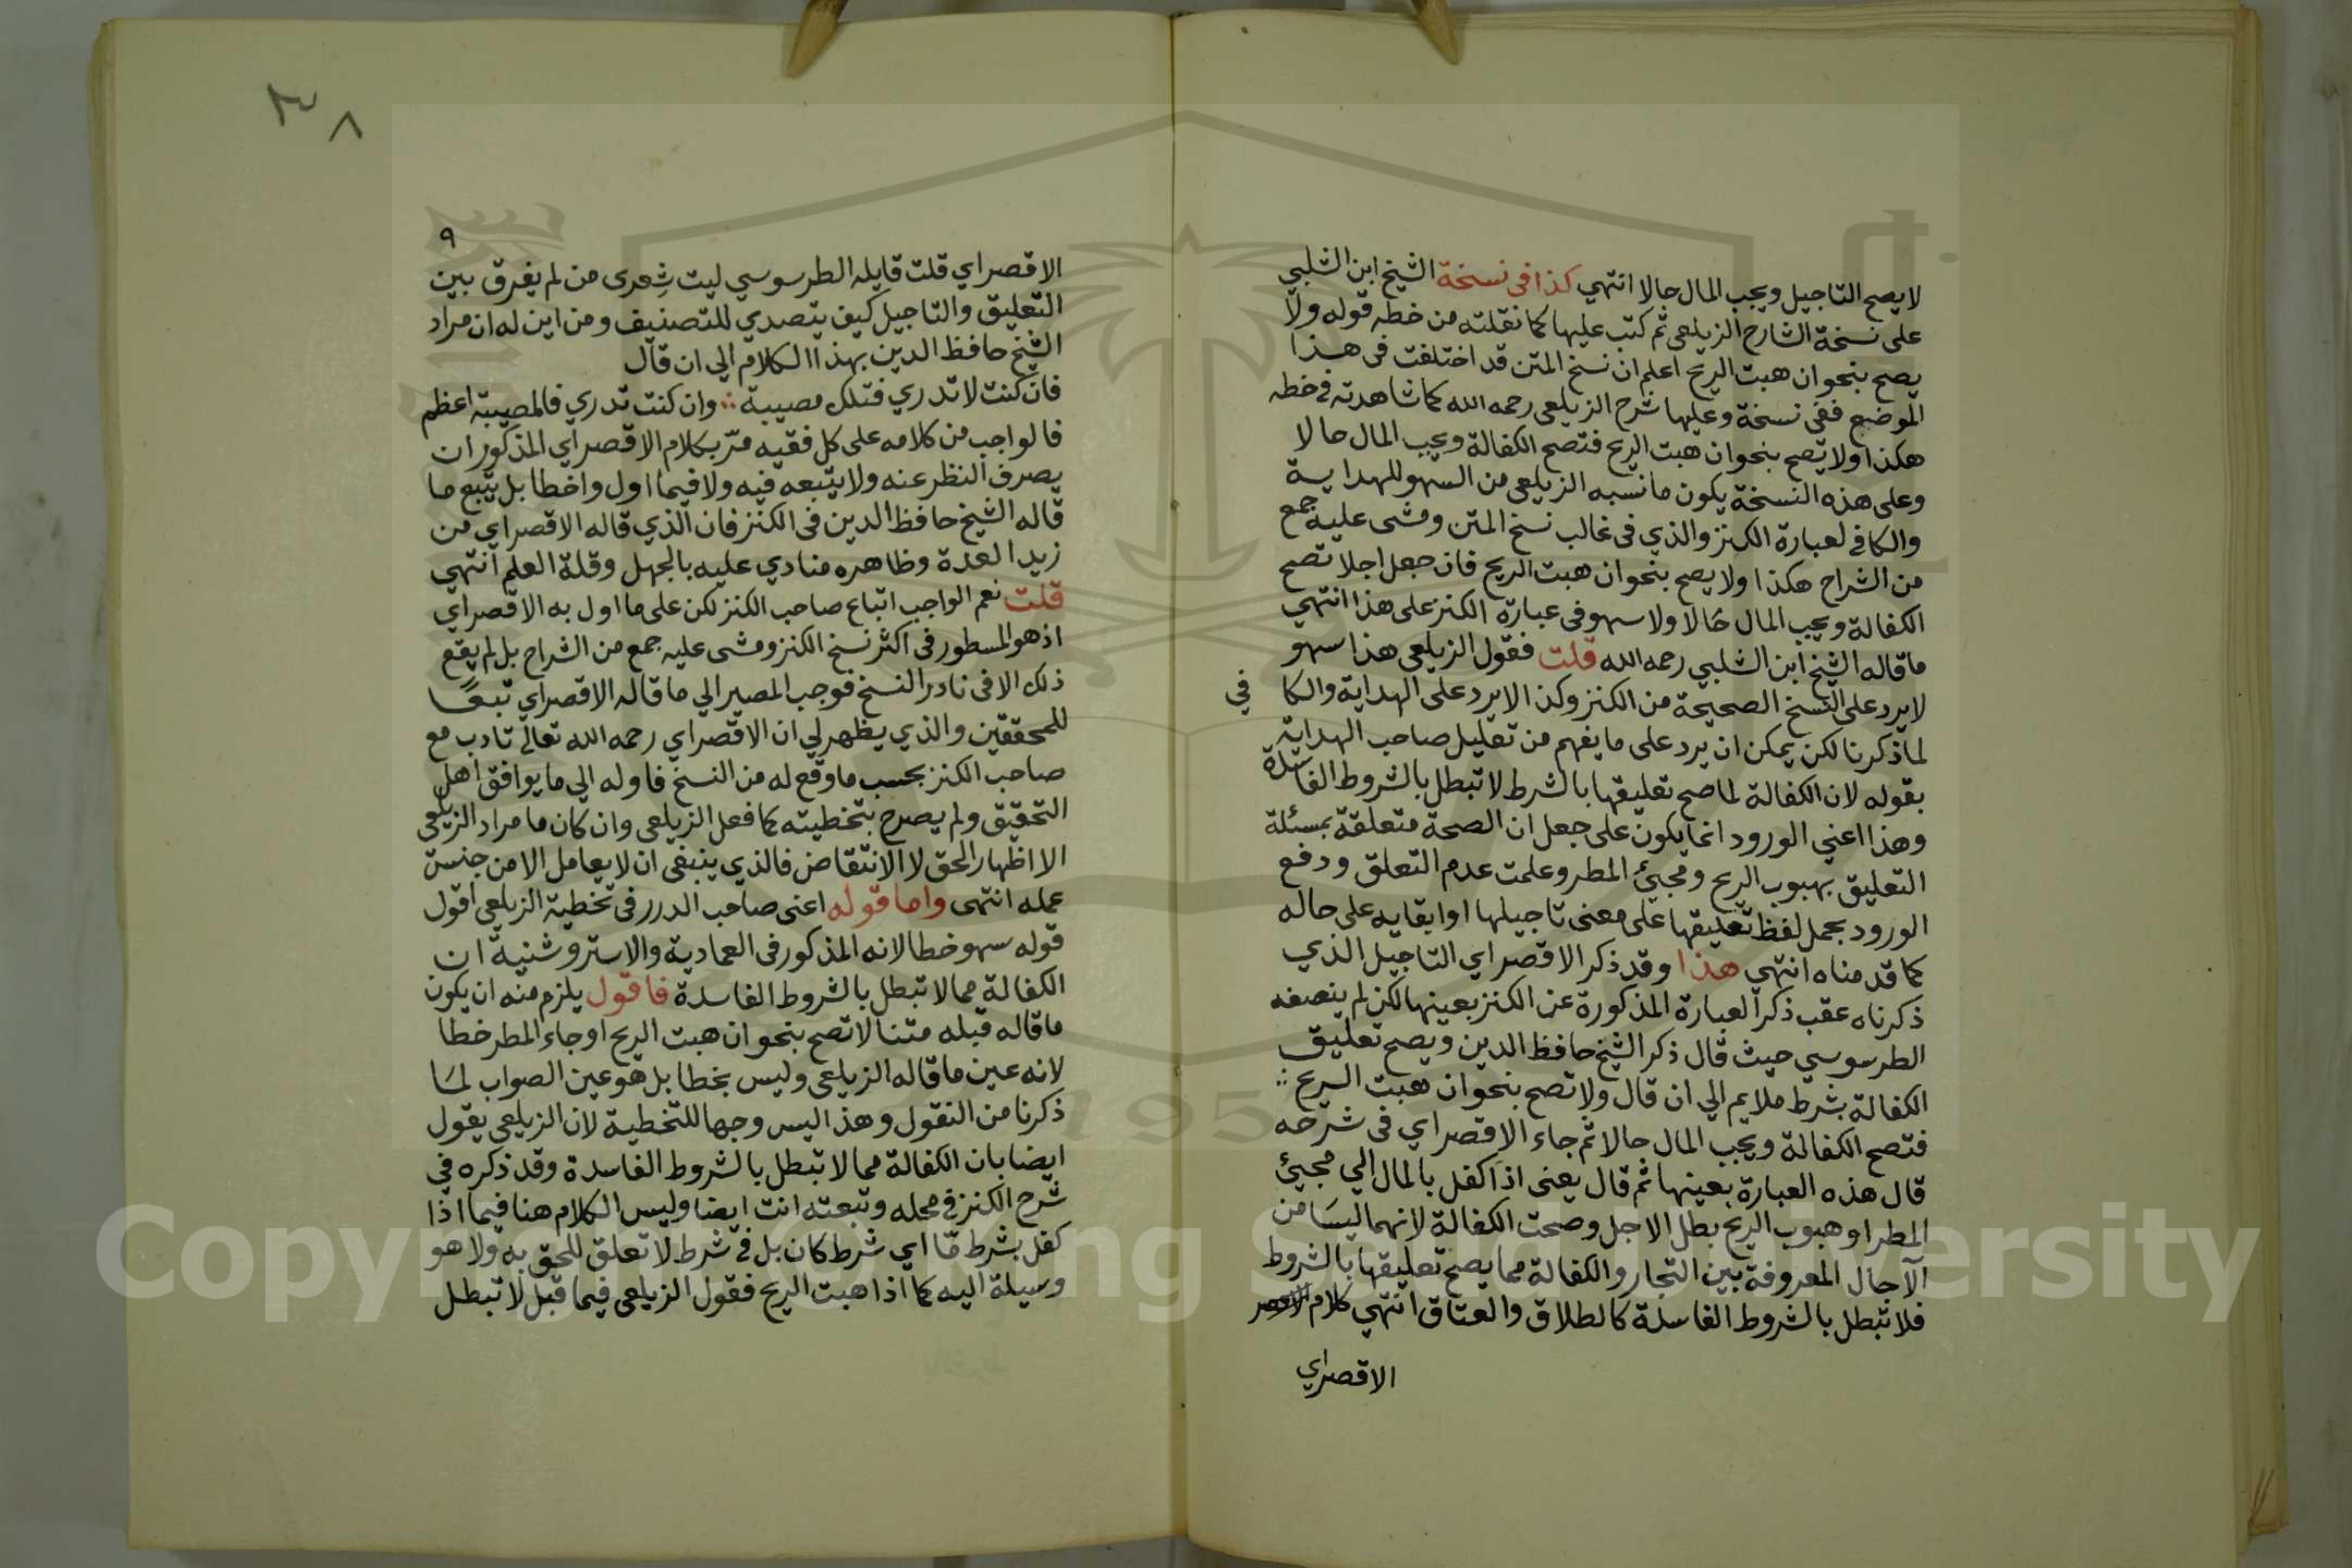 لا يصح التاجيل ويجب المال حالا انتهي كذا فى نسخة الشيخ ابن الشلبي
على نسخة الشارح الزيلعى ثم كتب عليها كما نقلته من خطه قوله ولا
يصح بنحو ان هبت الريح اعلم ان نسخ المتن قد اختلفت فى هذا
الموضع ففى نسخة وعليها شرح الزيلعى رحمه الله كما شاهدته فى خطه
هكذا ولا تصح بنحو ان هبت الريح فتصح الكفالة ويجب المال حالا
وعلى هذه النسخة يكون ما نسبه الزيلعى من السهو للهداية
والكافى لعبارة الكنز والذي فى غالب نسخ المتن ومشى عليه جمع
من الشراح هكذا ولا يصح بنحو ان هبت الريح فان جعل اجلا تصح
الكفالة ويجب المال حالا ولا سهو فى عبارة الكنز على هذا انتهي
ما قاله الشيخ ابن الشلبي رحمه الله قلت فقول الزيلعى هذا سهو
لا يرد على النسخ الصحيحة من الكنز وكذا لا يرد على الهداية والكا فى
لما ذكرنا لكن يمكن ان يرد على ما يفهم من تعليل صاحب الهداية
بقوله لان الكفالة لما صح تعليقها بالشرط لا تبطل بالشروط الفاسدة
وهذا اعني الورود انما يكون على جعل ان الصحة متعلقة بمسئلة
التعليق بهبوب الريح ومجيئ المطر وعلمت عدم التعلق ودفع
الورود بحمل لفظ تعليقها على معنى تاجيلها او ابقايه على حاله
كما قدمناه انتهي هذا وقد ذكر الاقصراي التاجيل الذي
ذكرناه عقب ذكر العبارة المذكورة عن الكنز بعينها لكن لم ينصفه
الطرسوسي حيث قال ذكر الشيخ حافظ الدين ويصح تعليق
الكفالة بشرط ملايم الي ان قال ولا تصح بنحو ان هبت الريح
فتصح الكفالة ويجب المال حالا ثم جاء الاقصراي فى شرحه
قال هذه العبارة بعينها ثم قال يعنى اذا كفل بالمال الي مجيئ
المطر او هبوب الريح بطل الاجل وصحت الكفالة لانهما ليسا من
الآجال المعروفة بين التجار والكفالة مما يصح تعليقها بالشروط
فلا تبطل بالشروط الفاسدة كالطلاق والعتاق انتهي كلام
الاقصراي
٣٨
٩
الاقصراي قلت قايله الطرسوسي ليت شعرى من لم يفرق بين
التعليق والتاجيل كيف يتصدي للتصنيف ومن اين له ان مراد
الشيخ حافظ الدين بهذا الكلام الي ان قال
فان كنت لا تدري فتلك مصيبة ∴ وان كنت تدري فالمصيبة اعظم
فالواجب من كلامه على كل فقيه مرّ بكلام الاقصراي المذكور ان
يصرف النظر عنه ولا يتبعه فيه ولا فيما اول واخطا بل يتبع ما
قاله الشيخ حافظ الدين فى الكنز فان الذي قاله الاقصراي من
زيد العدة وظاهره منادي عليه بالجهل وقلة العلم انتهي
قلت نعم الواجب اتباع صاحب الكنز لكن على ما اول به الاقصراي
اذ هو المسطور فى اكثر نسخ الكنز ومشى عليه جمع من الشراح بل لم يقع
ذلك الا فى نادر النسخ فوجب المصير الي ما قاله الاقصراي تبعًا
للمحققين والذي يظهر لي ان الاقصراي رحمه الله تعالى تادب مع
صاحب الكنز بحسب ما وقع له من النسخ فاوله الي ما يوافق اهل
التحقيق ولم يصرح بتخطيته كما فعل الزيلعى وان كان ما مراد الزيلعى
الا اظهار الحق لا الانتقاص فالذي ينبغى ان لا يعامل الا من جنس
عمله انتهى واما قوله اعنى صاحب الدرر فى تخطية الزيلعى اقول
قوله سهو خطا لانه المذكور فى العمادية والاستروشنية ان
الكفالة مما لا تبطل بالشروط الفاسدة فاقول يلزم منه ان يكون
ما قاله قبله متنا لا تصح بنحو ان هبت الريح او جاء المطر خطا
لانه عين ما قاله الزيلعى وليس بخطا بل هو عين الصواب لما
ذكرنا من النقول وهذا ليس وجها للتخطية لان الزيلعى يقول
ايضا بان الكفالة مما لا تبطل بالشروط الفاسدة وقد ذكره في
شرح الكنز في محله وتبعته انت ايضا وليس الكلام هنا فيما اذا
كفل بشرط مّا اي شرط كان بل فى شرط لا تعلق للحق به ولا هو
وسيلة اليه كما اذا هبت الريح فقول الزيلعى فيما قبل لا تبطل
Copyright © King Saud University